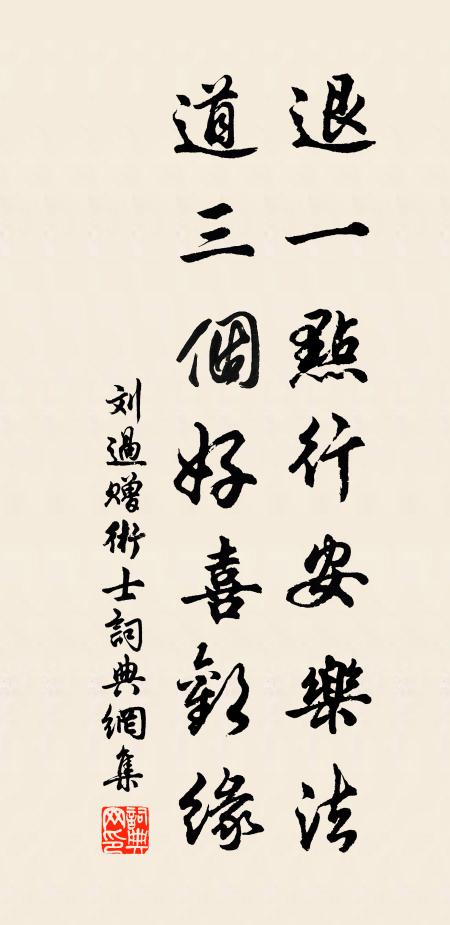 退一點行安樂法
道三個好喜歡緣
刘過贈術士詞典網集
詞典网印